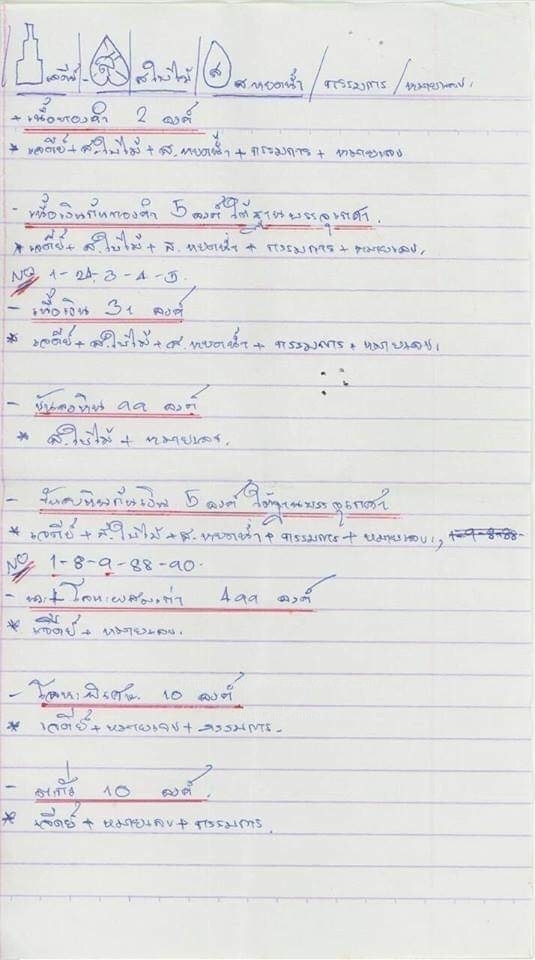 เจดีย์ - ส ส.ใบไม้ ส ส.หยดน้ำ / กรรมการ / หมายเลข.
+ เนื้อทองคำ 2 องค์
* เจดีย์ + ส.ใบไม้ + ส.หยดน้ำ + กรรมการ + หมายเลข
- เนื้อเงินก้นทองคำ 5 องค์ ใต้ฐานบรรจุเกศา.
* เจดีย์ + ส.ใบไม้ + ส.หยดน้ำ + กรรมการ + หมายเลข.
NO 1-24-3-4-5.
- เนื้อเงิน 31 องค์
* เจดีย์ + ส.ใบไม้ + ส.หยดน้ำ + กรรมการ + หมายเลข.
- ขันลงหิน ๑๑ องค์
* ส.ใบไม้ + หมายเลข.
- ขันลงหินก้นเงิน 5 องค์ ใต้ฐานบรรจุเกศา
* เจดีย์ + ส.ใบไม้ + ส.หยดน้ำ + กรรมการ + หมายเลข,
NO 1-8-9-88-90.
- โลหะผสมเก่า 4๑๑ องค์
* เจดีย์ + หมายเลข.
- โลหะพิเศษ 10 องค์
* เจดีย์ + หมายเลข + กรรมการ.
- ตะกั่ว 10 องค์.
* เจดีย์ + หมายเลข + กรรมการ.